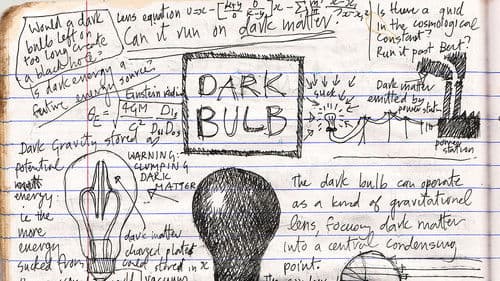 Would a dark
bulb left on
too long create
a black hole?
Is dark energy a
future energy source?
Lens equation
Can it run on dark matter?
Is there a grid
in the cosmological
constant?
Run it past Bert?
Einstein Radius
4GM
DARK
BULB
suck
Dark matter
emitted by
power station
power
station
Dark Gravity stored as
potential
energy
i.e the
more
energy
sucked from
WARNING:
CLUMPING
DARK
MATTER
dark matter
charged plates
stored in x
vacuum
The dark bulb can operate
as a kind of gravitational
lens, focusing dark matter
into a central condensing
point.